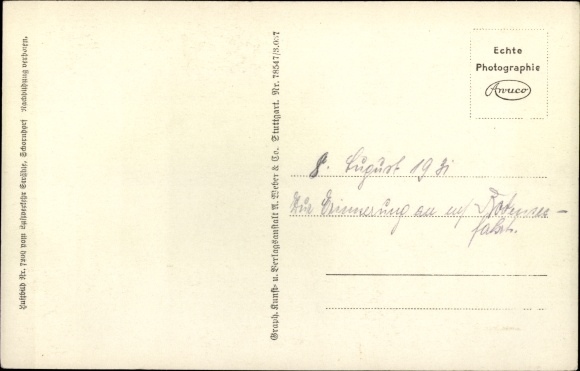 Luftbild Nr. 7209 vom Luftverkehr Strähle, Schorndorf Nachbildung verboren.
Graph. Kunst- u. Verlagsanstalt A. Weber & Co. Stuttgart. Nr. 78547/3.037
Echte
Photographie
Awuco
8. August 1931
Zur Erinnerung an uns/ Bodensee-
fahrt.